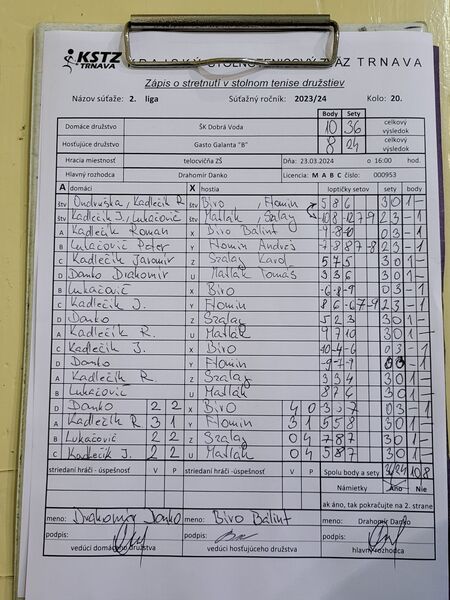 KSTZ TRNAVA KRAJSKÝ STOLNOTENISOVÝ ZVÄZ TRNAVA
Zápis o stretnutí v stolnom tenise družstiev
Názov súťaže: 2. liga Súťažný ročník: 2023/24 Kolo: 20.
Body Sety
Domáce družstvo ŠK Dobrá Voda 10 36 celkový výsledok
Hosťujúce družstvo Gasto Galanta "B" 8 24 celkový výsledok
Hracia miestnosť telocvičňa ZŠ Dňa: 23.03.2024 o 16:00 hod.
Hlavný rozhodca Drahomír Danko Licencia M A B C číslo: 000953
A domáci X hostia loptičky setov sety body
štv Ondruška, Kadlečík R. štv Biro, Flomin 5 8 6 3 0 1 -
štv Kadlečík J., Lukáčovič štv Matlák, Szalay 10 8 -12 7 -9 2 3 - 1
A Kadlečík Roman X Biro Bálint -9 -8 -9 0 3 - 1
B Lukáčovič Peter Y Flomin Andrej -7 8 8 7 -8 2 3 - 1
C Kadlečík Jaromír Z Szalay Karol 5 7 5 3 0 1 -
D Danko Drahomír U Matlák Tomáš 3 3 6 3 0 1 -
B Lukáčovič X Biro -6 -8 -9 0 3 - 1
C Kadlečík J. Y Flomin 8 6 -6 7 -9 2 3 - 1
D Danko Z Szalay 5 2 3 3 0 1 -
A Kadlečík R. U Matlák 9 7 10 3 0 1 -
C Kadlečík J. X Biro -10 -4 -6 0 3 - 1
D Danko Y Flomin -9 -7 -9 0 3 - 1
A Kadlečík R. Z Szalay 3 3 4 3 0 1 -
B Lukáčovič U Matlák 8 7 6 3 0 1 -
D Danko 2 2 X Biro 4 0 0 3 - 1
A Kadlečík R 3 1 Y Flomin 3 1 5 5 8 3 0 1 -
B Lukáčovič 2 2 Z Szalay 0 4 7 8 7 3 0 1 -
C Kadlečík J. 2 2 U Matlák 0 4 5 8 7 3 0 1 -
striedaní hráči - úspešnosť V P striedaní hráči - úspešnosť V P Spolu body a sety 36 24 10 8
Námietky Áno Nie
ak áno, tak pokračujte na 2. strane
meno: Drahomír Danko meno: Biro Bálint meno: Drahomír Danko
podpis: podpis: podpis:
vedúci domáceho družstva vedúci hosťujúceho družstva hlavný rozhodca